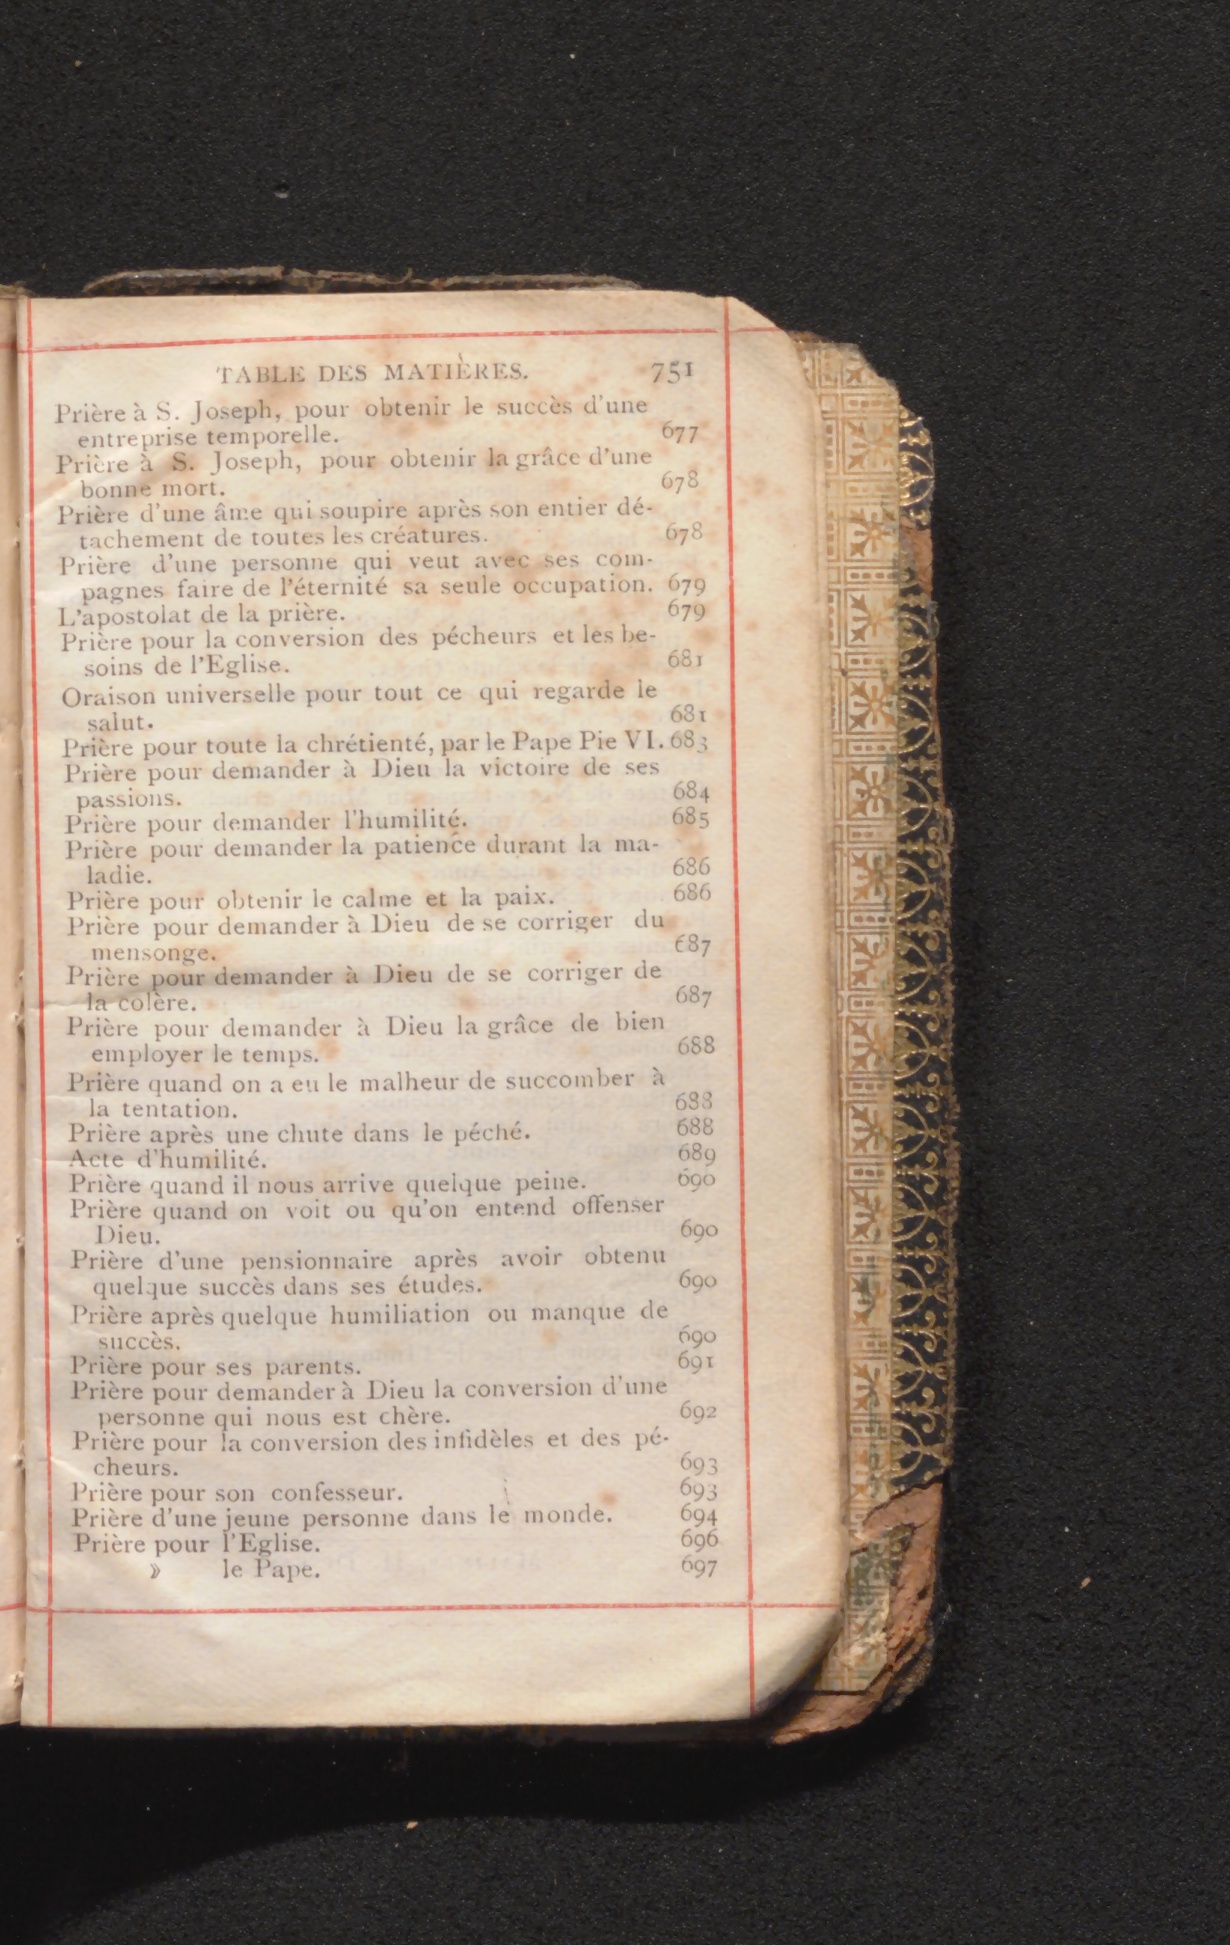 TABLE DES MATIÈRES. 751
Prière à S. Joseph, pour obtenir le succès d'une
entreprise temporelle. 677
Prière à S. Joseph, pour obtenir la grâce d'une
bonne mort. 678
Prière d'une âme qui soupire après son entier dé-
tachement de toutes les créatures. 678
Prière d'une personne qui veut avec ses com-
pagnes faire de l'éternité sa seule occupation. 679
L'apostolat de la prière. 679
Prière pour la conversion des pécheurs et les be-
soins de l'Eglise. 681
Oraison universelle pour tout ce qui regarde le
salut. 681
Prière pour toute la chrétienté, par le Pape Pie VI. 683
Prière pour demander à Dieu la victoire de ses
passions. 684
Prière pour demander l'humilité. 685
Prière pour demander la patience durant la ma-
ladie. 686
Prière pour obtenir le calme et la paix. 686
Prière pour demander à Dieu de se corriger du
mensonge. 687
Prière pour demander à Dieu de se corriger de
la colère. 687
Prière pour demander à Dieu la grâce de bien
employer le temps. 688
Prière quand on a eu le malheur de succomber à
la tentation. 688
Prière après une chute dans le péché. 688
Acte d'humilité. 689
Prière quand il nous arrive quelque peine. 690
Prière quand on voit ou qu'on entend offenser
Dieu. 690
Prière d'une pensionnaire après avoir obtenu
quelque succès dans ses études. 690
Prière après quelque humiliation ou manque de
succès. 690
Prière pour ses parents. 691
Prière pour demander à Dieu la conversion d'une
personne qui nous est chère. 692
Prière pour la conversion des infidèles et des pé-
cheurs. 693
Prière pour son confesseur. 693
Prière d'une jeune personne dans le monde. 694
Prière pour l'Eglise. 696
» le Pape. 697